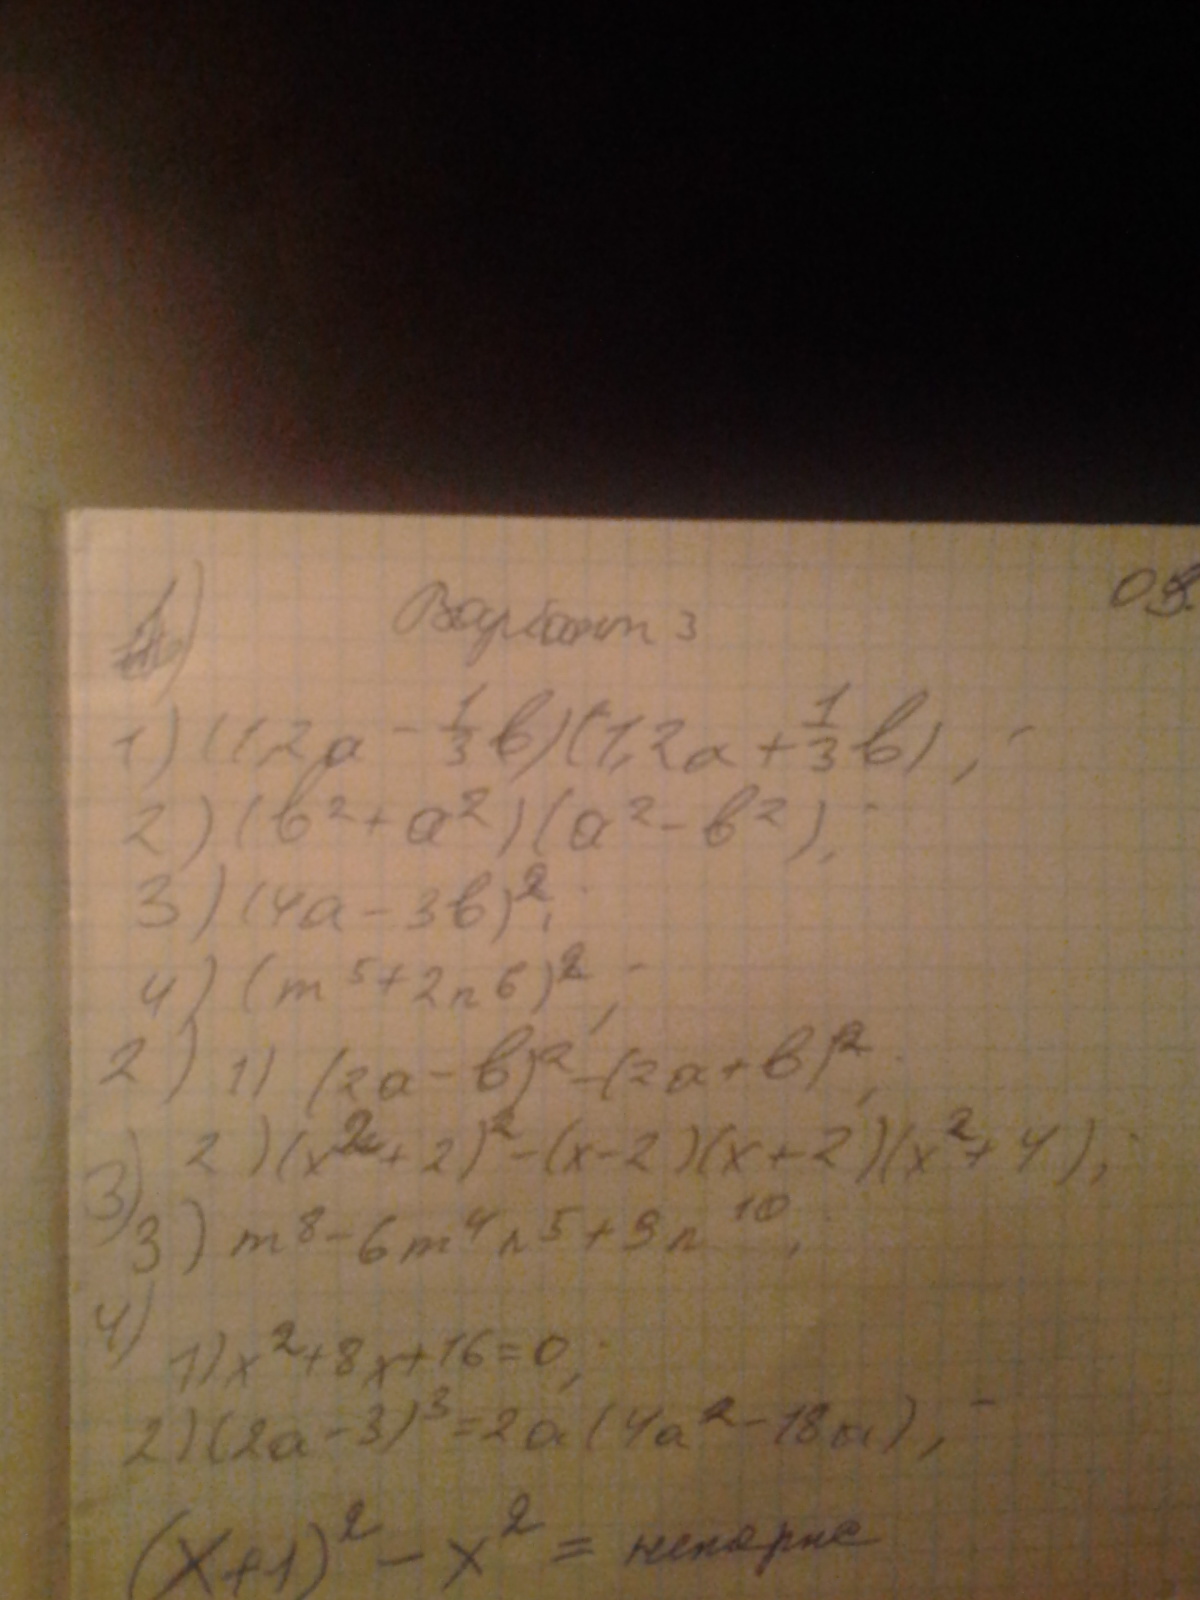 1) Варіант 3 03.
1) (1,2a - 1/3 b)(1,2a + 1/3 b);
2) (b² + a²)(a² - b²);
3) (4a - 3b)²;
4) (m⁵ + 2n⁶)²;
2) 1) (2a - b)² - (2a + b)²;
3) 2) (x² + 2)² - (x - 2)(x + 2)(x² + 4);
3) m⁸ - 6m⁴n⁵ + 9n¹⁰;
4)
1) x² + 8x + 16 = 0;
2) (2a - 3)³ = 2a(4a² - 18a);
(x + 1)² - x² = непарне